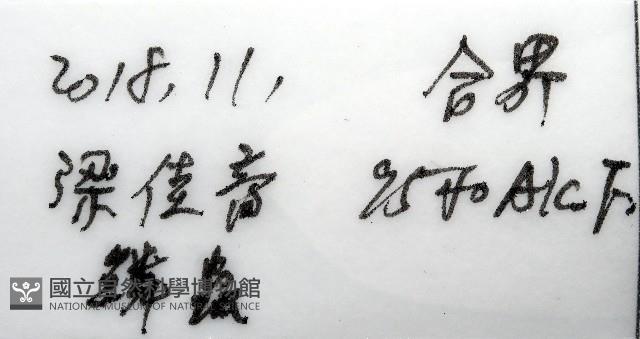 2018.11.
合界
梁佳音
95% Alc.
國立自然科學博物館
NATIONAL MUSEUM OF NATURAL SCIENCE